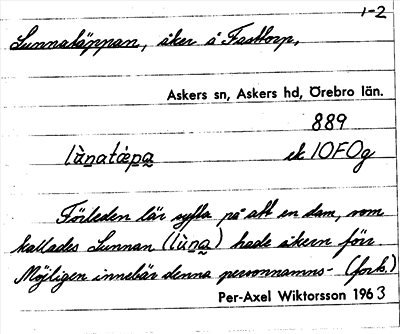 1-2
Lunnatäppan, åker å Fasttorp,
Askers sn, Askers hd, Örebro län.
889
lùnatæpa ek 10F0g
Förleden lär syfta på att en dam, som
kallades Lunnan (lùna) hade åkern förr.
Möjligen innebär denna personnamns- (forts.)
Per-Axel Wiktorsson 1963